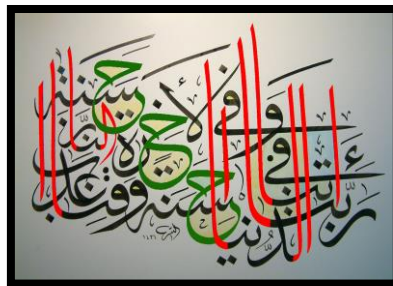 ربنا آتنا في الدنيا حسنة وفي الآخرة حسنة وقنا عذاب النار
١٤٢٦